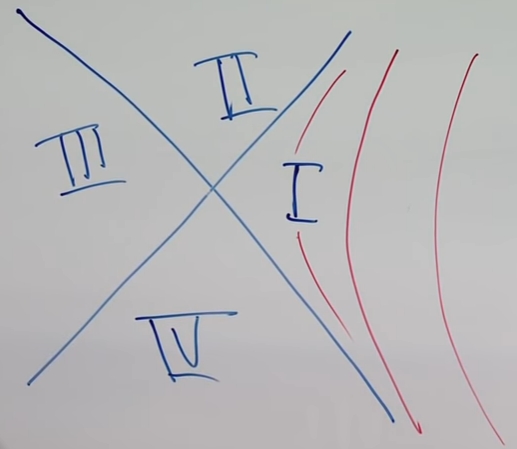 II
III
I
IV